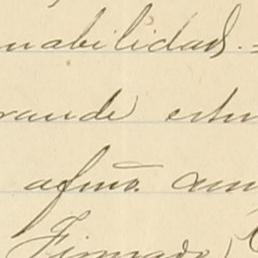 nabilidad. =
rande estu
afmo. am
Firmado,